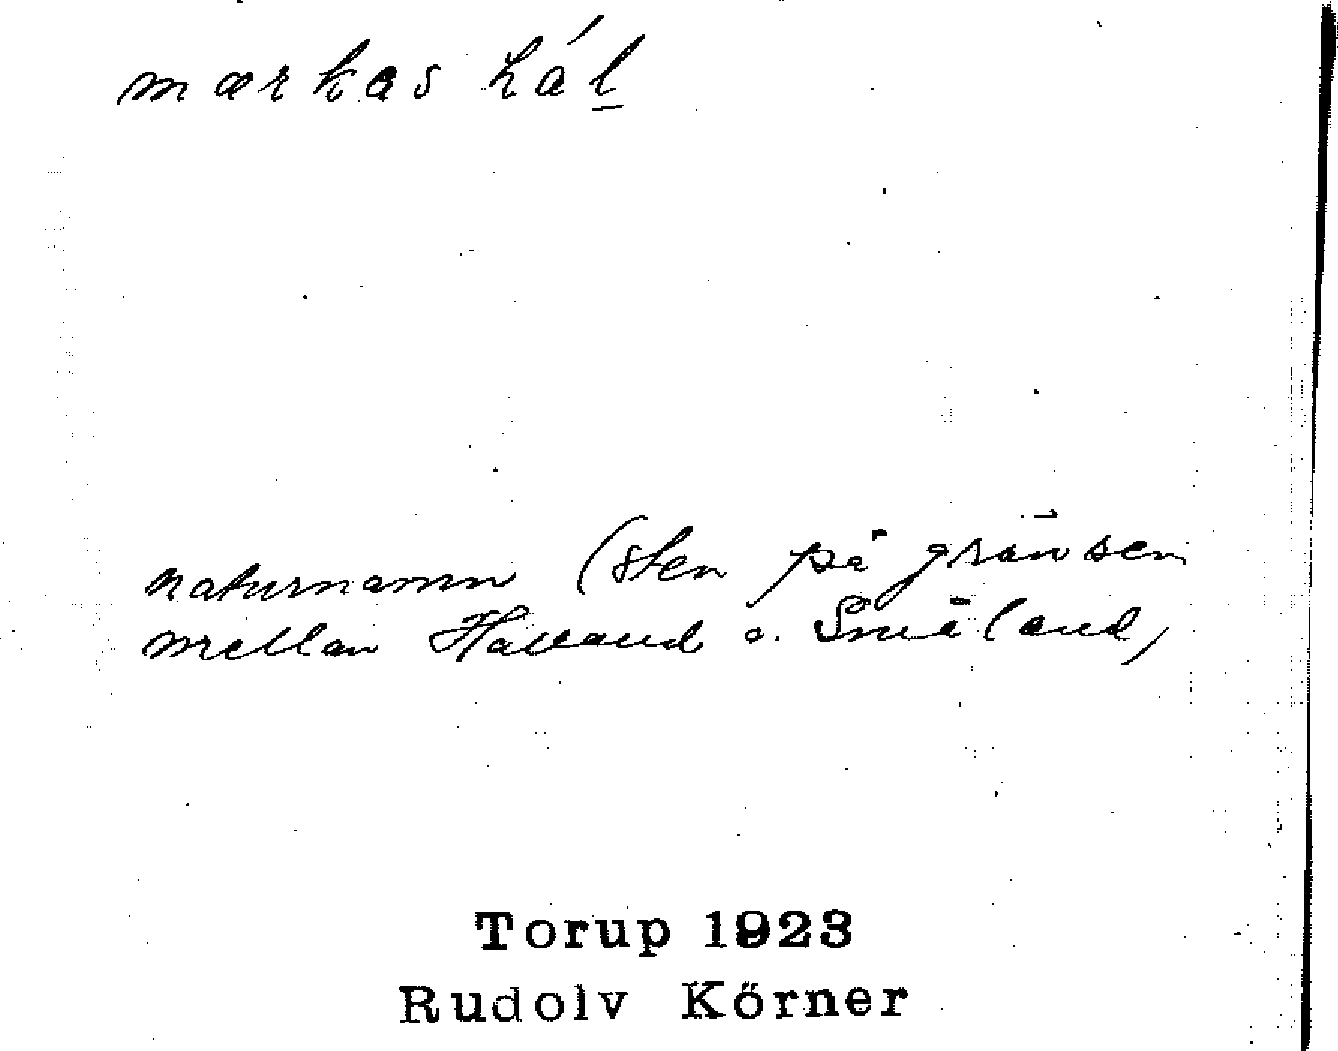 markas hál
naturnamn (sten på gränsen
mellan Halland o. Småland)
Torup 1923
Rudolv Körner